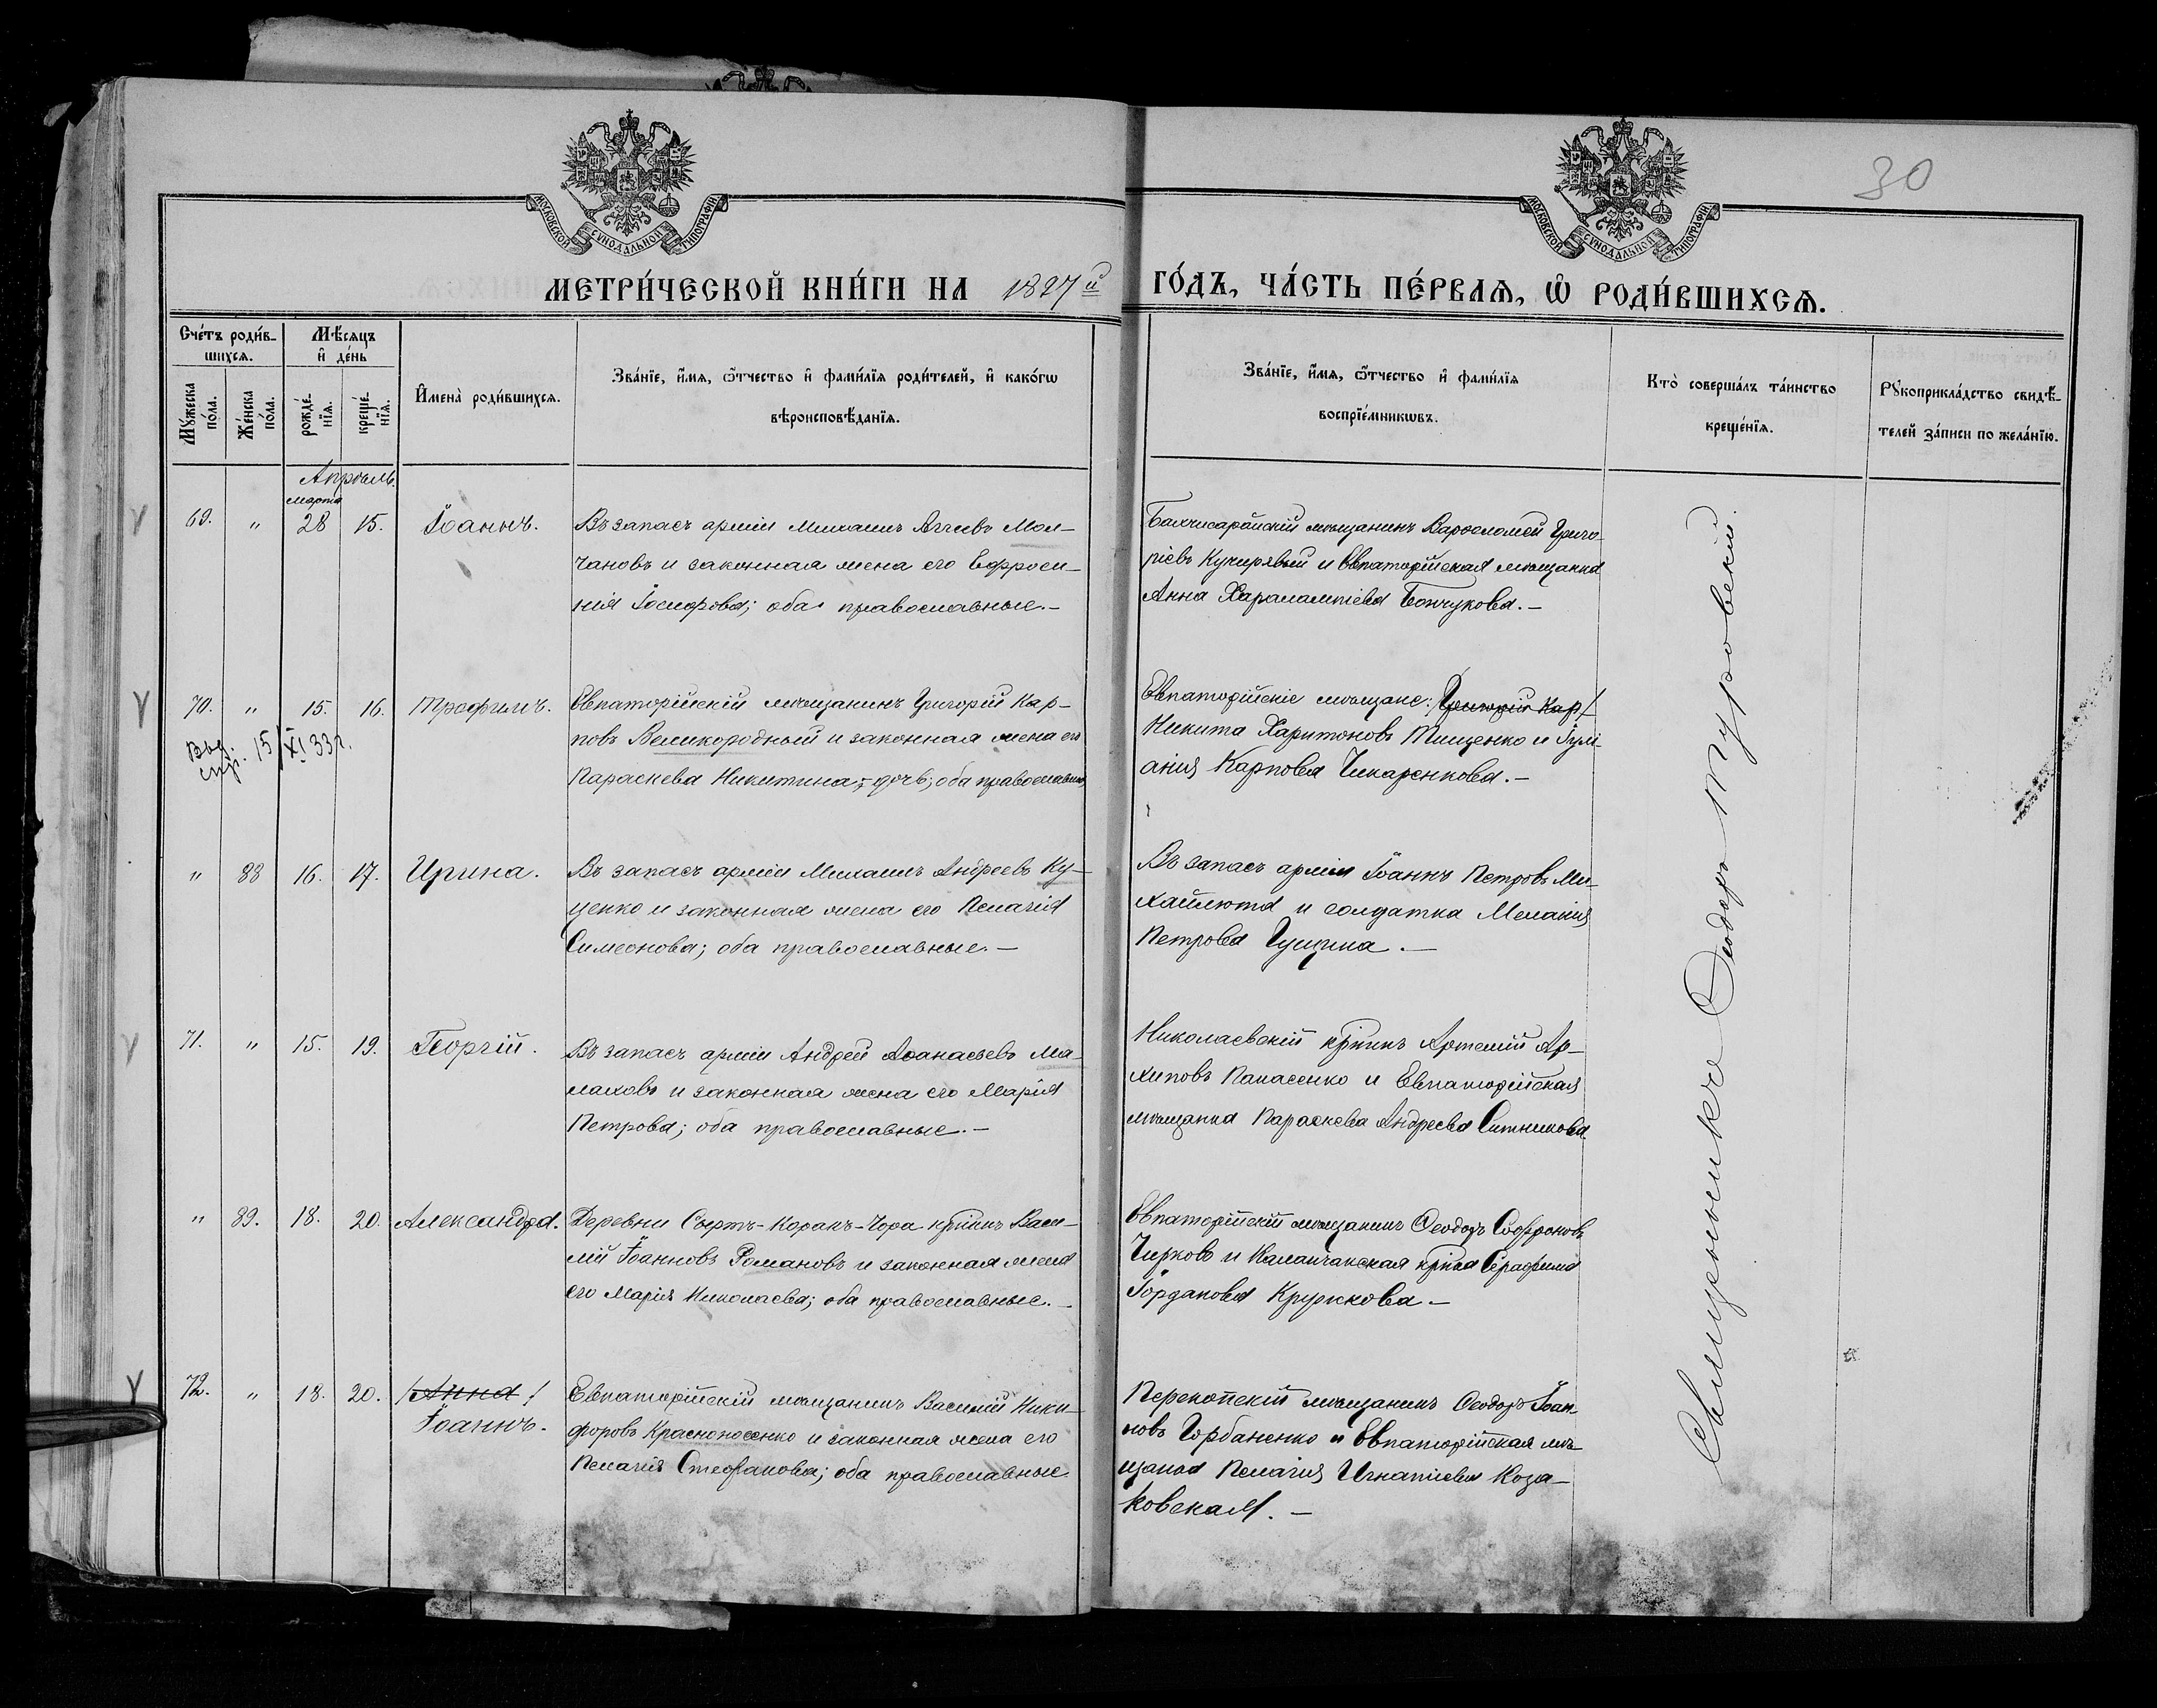 30
МОСКОВСКОЙ СѴНОДАЛЬНОЙ ТИПОГРАФІИ
МОСКОВСКОЙ СѴНОДАЛЬНОЙ ТИПОГРАФІИ
МЕТРИ́ЧЕСКОЙ КНИ́ГИ НА 1897й ГО́ДЪ, ЧА́СТЬ ПЕ́РВАѦ, Ѽ РОДИ́ВШИХСѦ.
Сче́тъ роди́в-
шихсѧ.
Мꙋ́жеска по́ла.
Же́нска по́ла.
Мѣ́сѧцъ
и҆ де́нь
рожде́-
нїѧ.
креще́-
нїѧ.
И҆мена̀ роди́вшихсѧ.
Зва́нїе, и҆́мѧ, ѻ҆́тчество и҆ фами́лїѧ роди́телей, и҆ како́гѡ
вѣроисповѣ́данїѧ.
Зва́нїе, и҆́мѧ, ѻ҆́тчество и҆ фами́лїѧ
воспрїе́мникѡвъ.
Кто̀ соверша́лъ та́инство
креще́нїѧ.
Рꙋкоприкла́дство свидѣ́-
телей за́писи по жела́нїю.
Апрѣль.
марта
69. " 28 15. Іоаннъ.
Въ запасѣ арміи Михаилъ Аггеевъ Мол-
чановъ и законная жена его Евфроси-
нія Іосифова; оба православные.-
Бахчисарайскій мѣщанинъ Варѳоломей Григо-
ріевъ Кучерявый и Евпаторійская мѣщанка
Анна Харалампіева Бончукова.-
70. " 15. 16. Трофимъ.
Выд.
спр. 15/XI 33 г.
Евпаторійскій мѣщанинъ Григорій Кар-
повъ Великородный и законная жена его
Параскева Никитина; оба православные
Евпаторійскіе мѣщане: /Григорій Кар/
Никита Харитоновъ Тищенко и Іулі-
анія Карпова Чикаренкова.-
" 88 16. 17. Ирина.
Въ запасѣ арміи Михаилъ Андреевъ Ку-
ценко и законная жена его Пелагія
Симеонова; оба православные.-
Въ запасѣ арміи Іоаннъ Петровъ Ми-
хайлюта и солдатка Меланія
Петрова Гущина.-
71. " 15. 19. Георгій.
Въ запасѣ арміи Андрей Аѳанасьевъ Ма-
лаховъ и законная жена его Марія
Петрова; оба православные.-
Николаевскій кр-нинъ Артемій Ар-
хиповъ Панасенко и Евпаторійская
мѣщанка Параскева Андреева Ситникова
" 89. 18. 20. Александра.
Деревни Сьертъ-Каракъ-Чора кр-нинъ Васи-
лій Іоанновъ Романовъ и законная жена
его Марія Николаева; оба православные.-
Евпаторійскій мѣщанинъ Ѳеодоръ Софроновъ
Чирковъ и Каланчакская кр-нка Серафима
Іорданова Крункова.-
72. " 18. 20. /Анна/
Іоаннъ.
Евпаторійскій мѣщанинъ Василій Ники-
форовъ Красноносенко и законная жена его
Пелагія Стефанова; оба православные
Перекопскій мѣщанинъ Ѳеодоръ Іоан-
новъ Горбаненко и Евпаторійская мѣ-
щанка Пелагія Игнатіева Коза-
ковская.-
Священникъ Ѳеодоръ Туровскій.